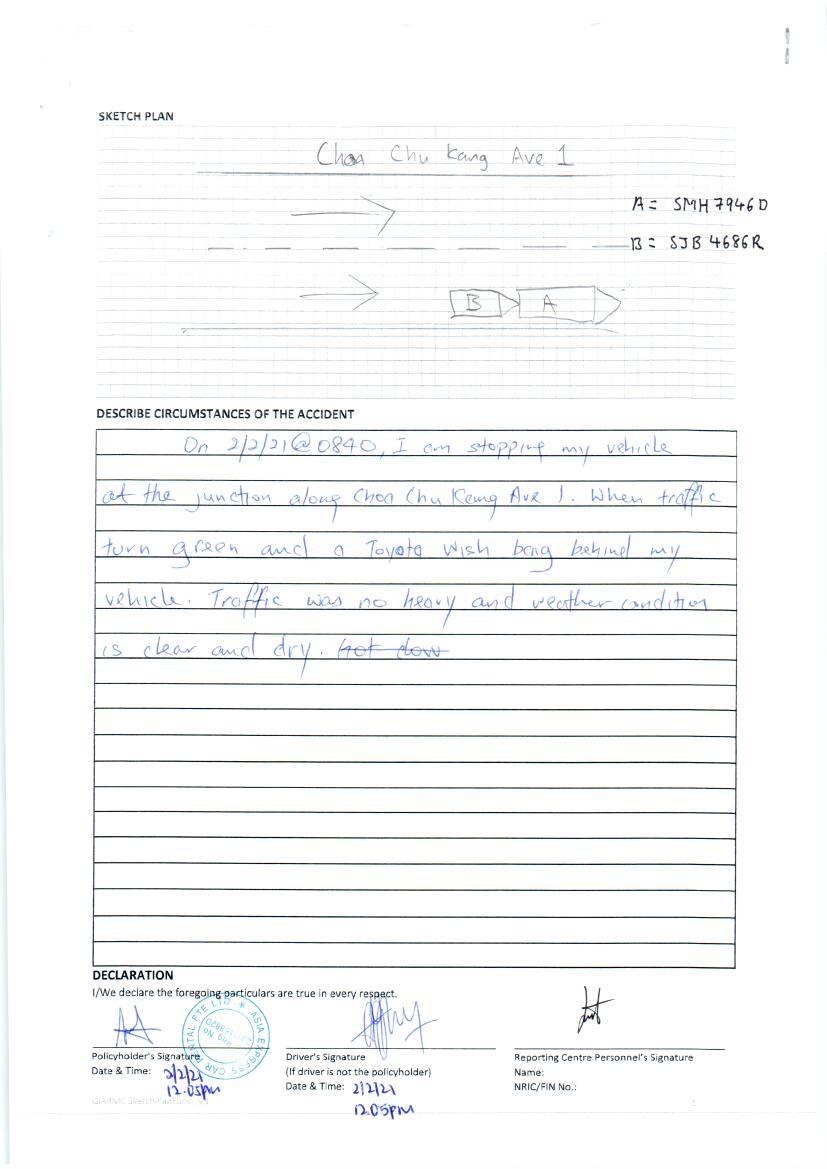 SKETCH PLAN
Choa Chu Kang Ave 1
A = SMH 7946D
B = SJB 4686R
B A
DESCRIBE CIRCUMSTANCES OF THE ACCIDENT
On 2/2/21@0840, I am stopping my vehicle
at the junction along Choa Chu Kang Ave 1. When traffic
turn green and a Toyota Wish bang behind my
vehicle. Traffic was no heavy and weather condition
is clear and dry. not dow
DECLARATION
I/We declare the foregoing particulars are true in every respect.
ASIA EXPRESS CAR RENTAL PTE LTD
Reg No
Policyholder's Signature
Date & Time: 2/2/21
12.05pm
Driver's Signature
(If driver is not the policyholder)
Date & Time: 2/2/21
12.05pm
Reporting Centre Personnel's Signature
Name:
NRIC/FIN No.: